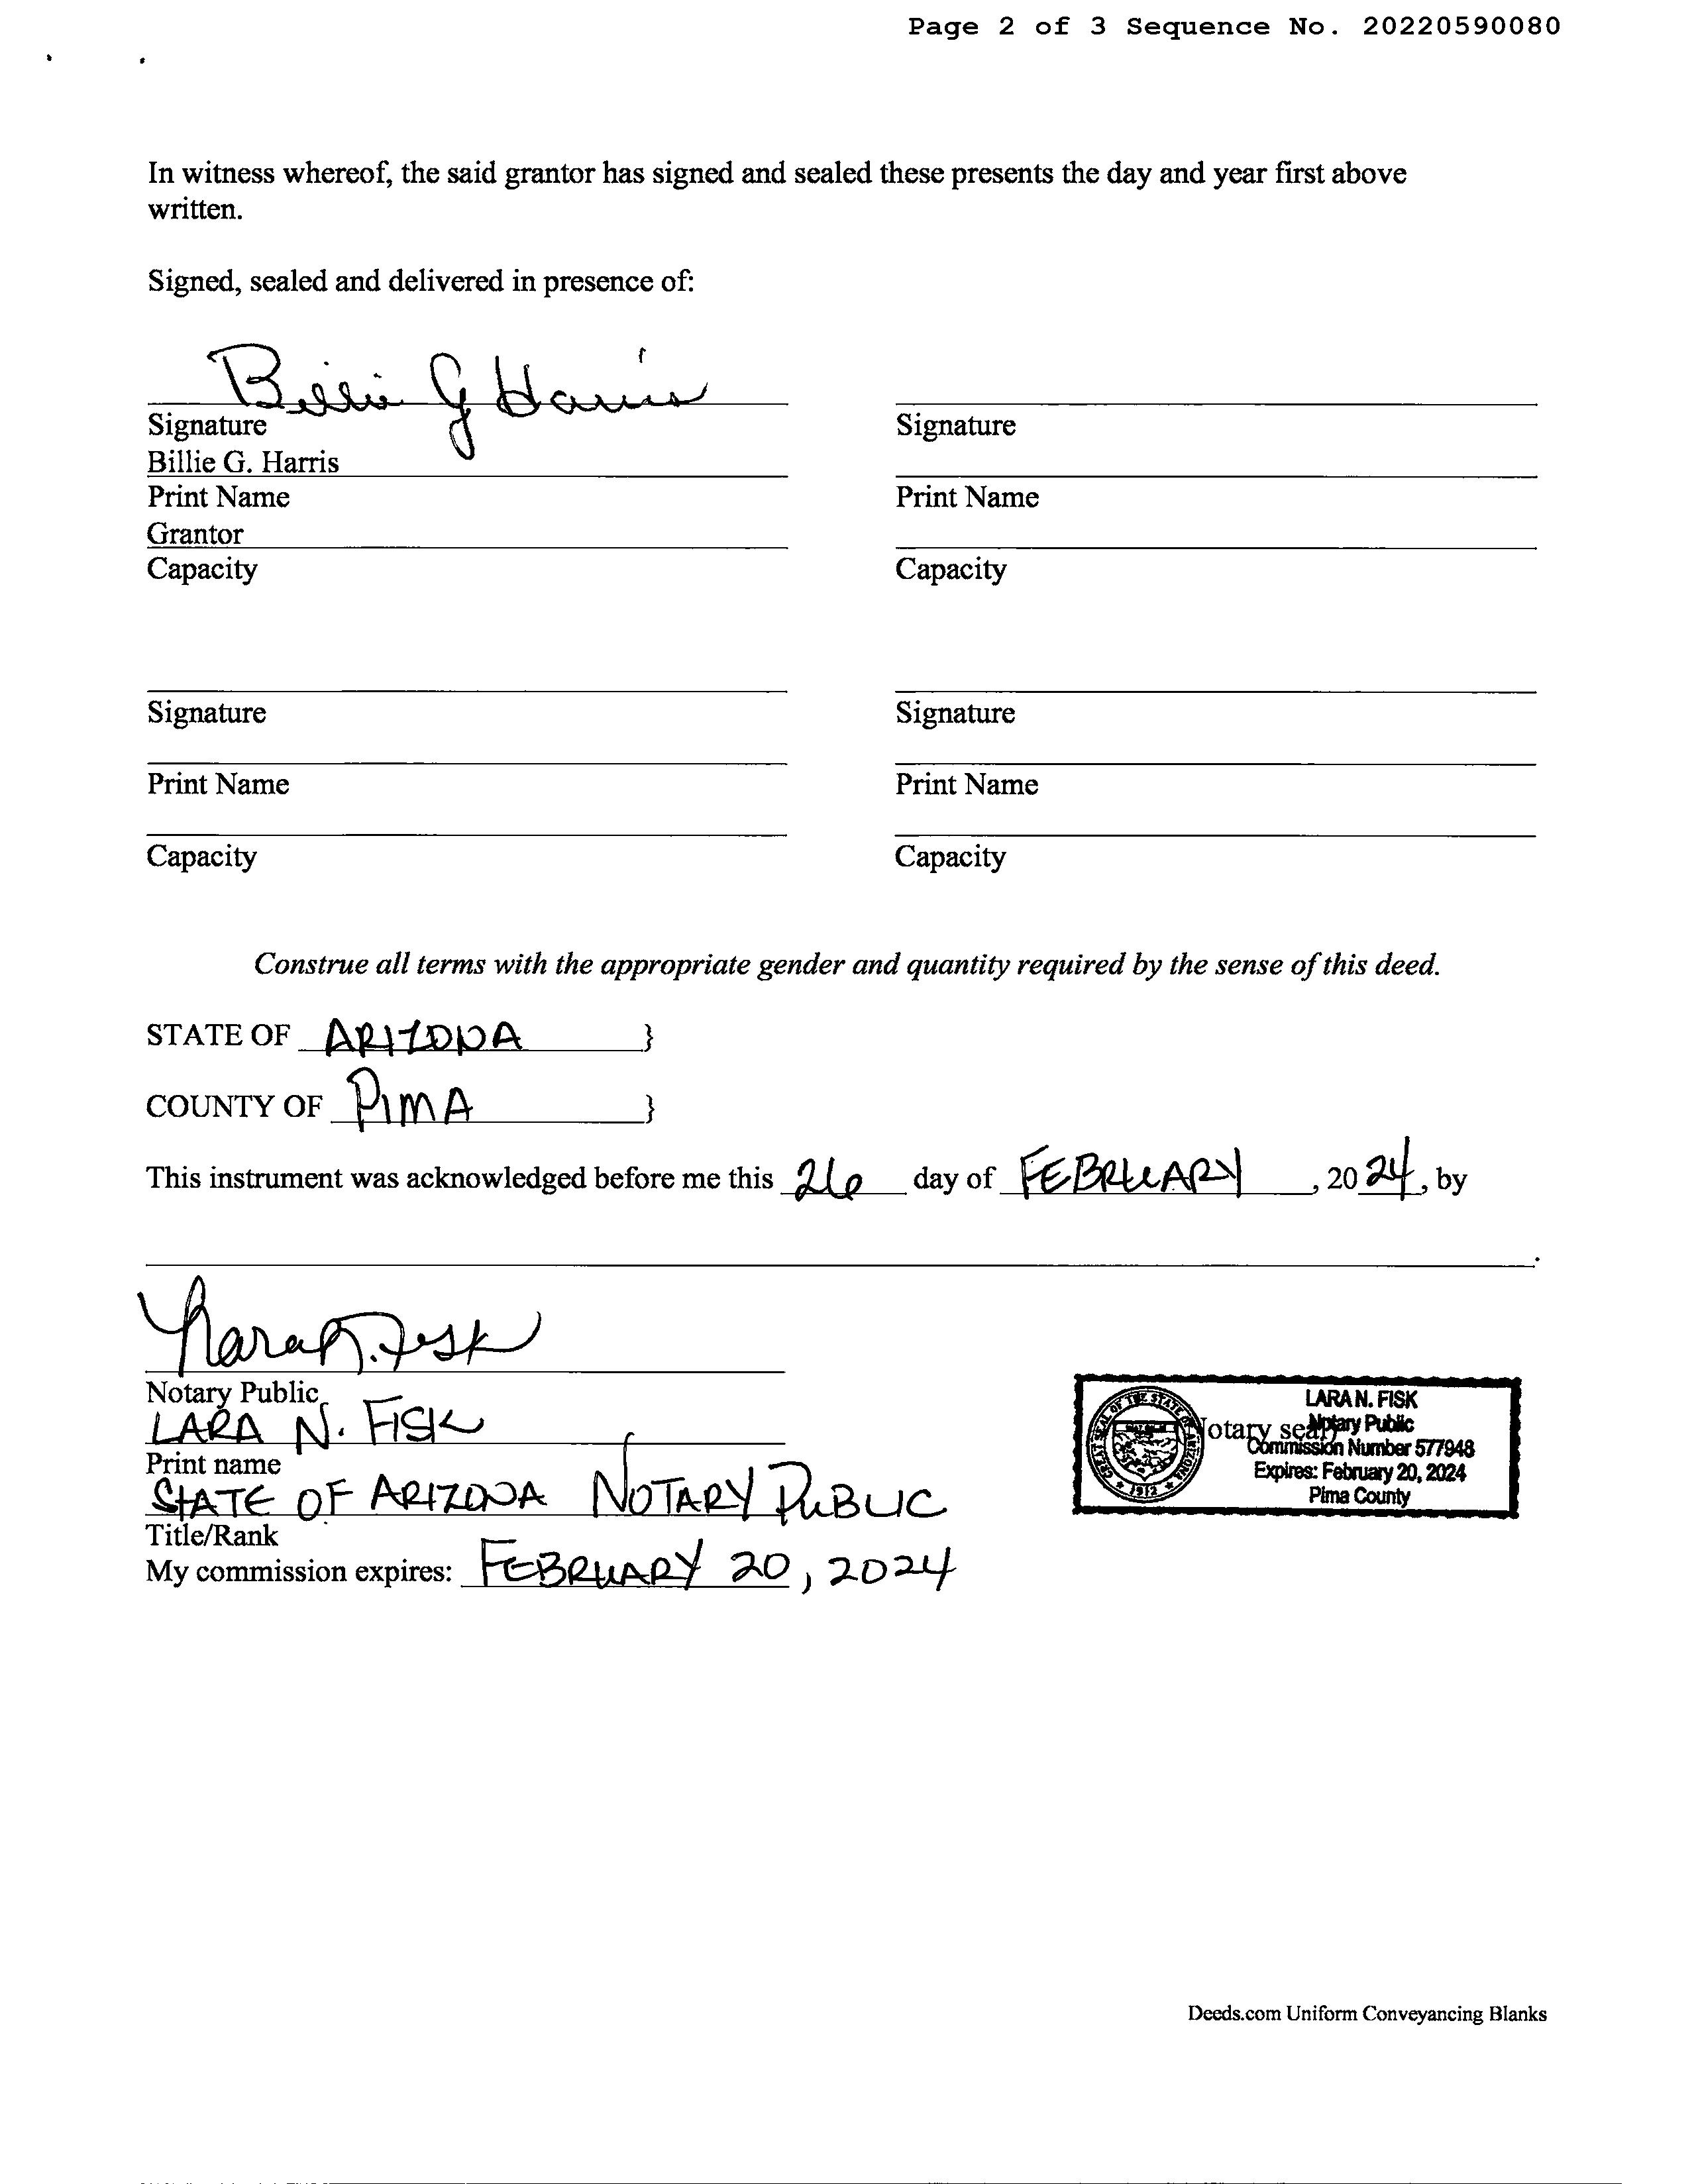 Page 2 of 3 Sequence No. 20220590080
In witness whereof, the said grantor has signed and sealed these presents the day and year first above
written.
Signed, sealed and delivered in presence of:
Billie G Harris
Signature
Signature
Billie G. Harris
Print Name
Print Name
Grantor
Capacity
Capacity
Signature
Signature
Print Name
Print Name
Capacity
Capacity
Construe all terms with the appropriate gender and quantity required by the sense of this deed.
STATE OF ARIZONA }
COUNTY OF PIMA }
This instrument was acknowledged before me this 26 day of FEBRUARY, 20 24, by
.
Lara N. Fisk
Notary Public
LARA N. FISK
Print name
STATE OF ARIZONA NOTARY PUBLIC
Title/Rank
My commission expires: FEBRUARY 20, 2024
GREAT SEAL OF THE STATE OF ARIZONA
1912
Notary seal
LARA N. FISK
Notary Public
Commission Number 577948
Expires: February 20, 2024
Pima County
Deeds.com Uniform Conveyancing Blanks